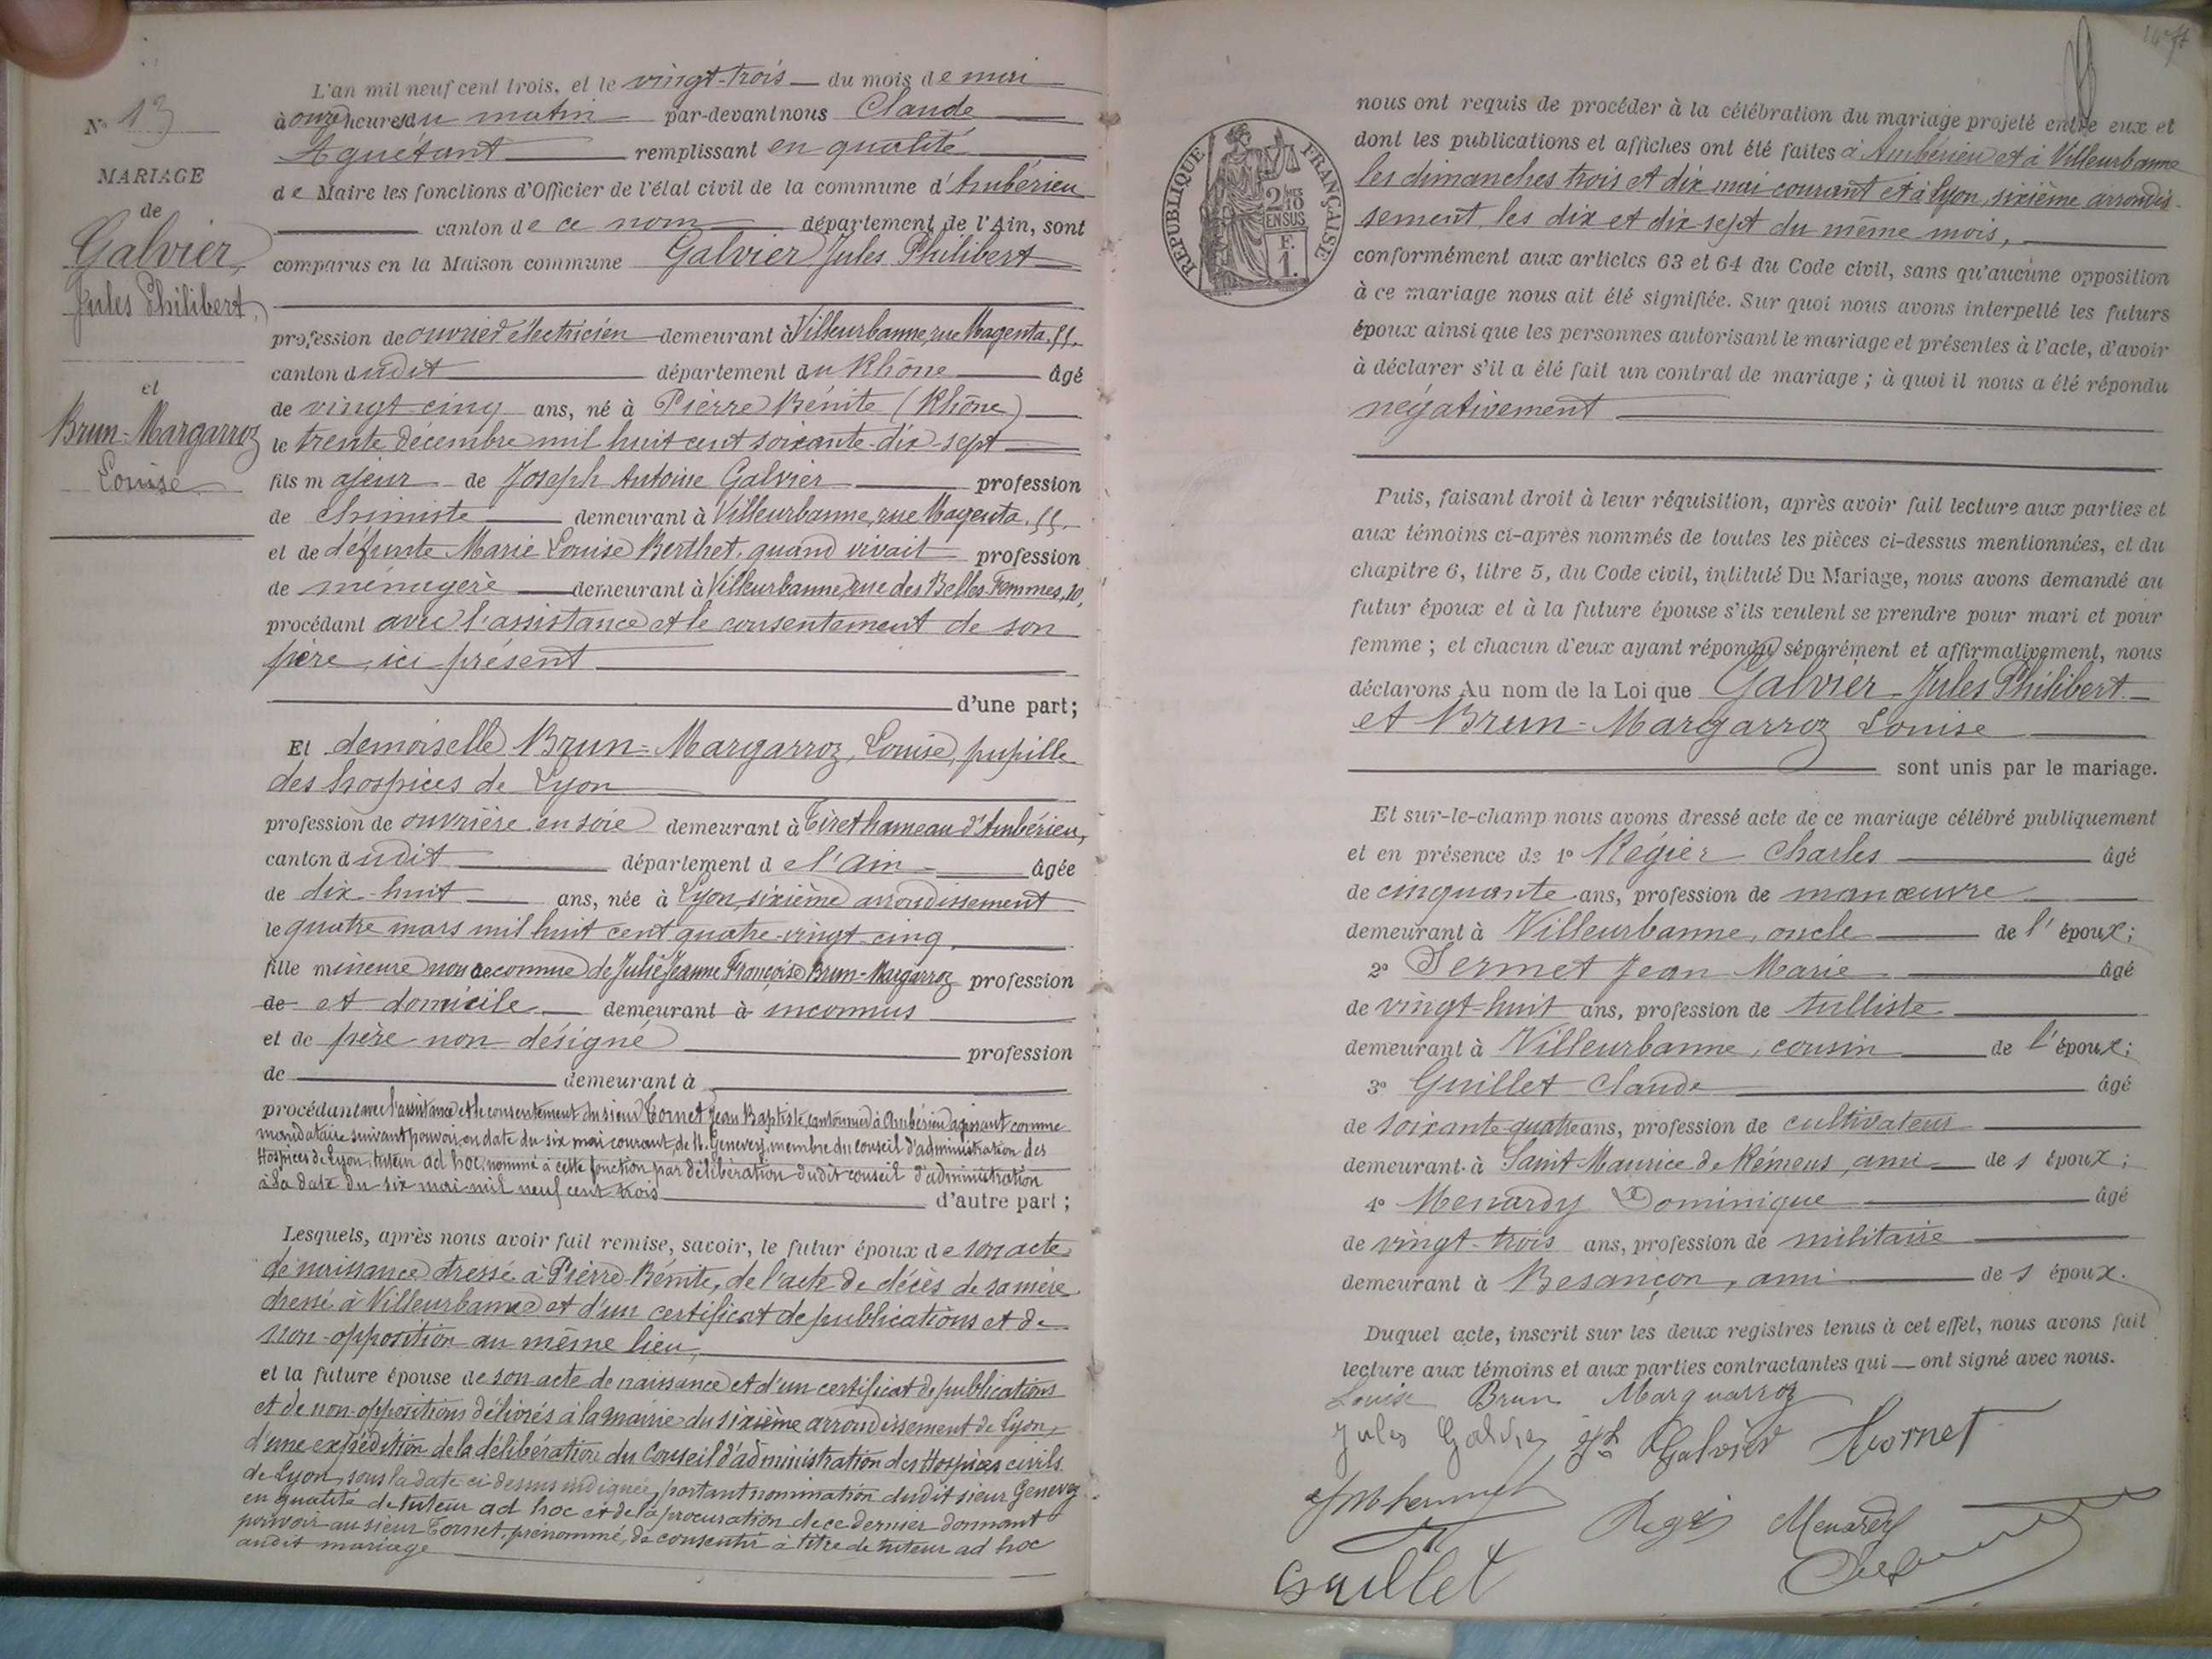 N° 13
MARIAGE
de
Galvier,
Jules Philibert,
et
Brun-Margarroz
Louise
L'an mil neuf cent trois, et le vingt-trois du mois de mai
à onze heures du matin par-devant nous Claude
Aguétant remplissant en qualité
de Maire les fonctions d'Officier de l'état civil de la commune d'Ambérieu
canton de ce nom département de l'Ain, sont
comparus en la Maison commune Galvier Jules Philibert
profession de ouvrier électricien demeurant à Villeurbanne, rue Magenta, 55.
canton dudit département du Rhône âgé
de vingt cinq ans, né à Pierre Bénite (Rhône)
le trente décembre mil huit cent soixante-dix-sept
fils majeur de Joseph Antoine Galvier profession
de chimiste demeurant à Villeurbanne, rue Magenta, 55.
et de défunte Marie Louise Berthet, quand vivait profession
de ménagère demeurant à Villeurbanne, rue des Belles-Femmes, 10,
procédant avec l'assistance et le consentement de son
père, ici présent
d'une part;
Et demoiselle Brun-Margarroz, Louise, pupille
des hospices de Lyon
profession de ouvrière en soie demeurant à Tiret hameau d'Ambérieu,
canton dudit département de l'Ain âgée
de dix-huit ans, née à Lyon, sixième arrondissement
le quatre mars mil huit cent quatre-vingt-cinq,
fille mineure non reconnue de Julie Jeanne Françoise Brun-Margarroz profession
de et domicile demeurant à inconnus
et de père non désigné profession
de demeurant à
procédant avec l'assistance et le consentement du sieur Tornet Jean Baptiste, cantonnier à Ambérieu agissant comme
mandataire suivant pouvoir en date du six mai courant, de M. Genevey, membre du conseil d'administration des
Hospices de Lyon, tuteur ad hoc, nommé à cette fonction par délibération dudit conseil d'administration
à la date du six mai mil neuf cent trois d'autre part;
Lesquels, après nous avoir fait remise, savoir, le futur époux de son acte
de naissance dressé à Pierre-Bénite, de l'acte de décès de sa mère
dressé à Villeurbanne et d'un certificat de publications et de
non-opposition au même lieu,
et la future épouse de son acte de naissance et d'un certificat de publications
et de non-oppositions délivrés à la mairie du sixième arrondissement de Lyon,
d'une expédition de la délibération du Conseil d'administration des Hospices civils
de Lyon, sous la date ci-dessus indiquée, portant nomination dudit sieur Genevey
en qualité de tuteur ad hoc et de la procuration de ce dernier donnant
pouvoir au sieur Tornet, prénommé, de consentir à titre de tuteur ad hoc
audit mariage
RÉPUBLIQUE FRANÇAISE
2/10
EN SUS
F.
1.
nous ont requis de procéder à la célébration du mariage projeté entre eux et
dont les publications et affiches ont été faites à Ambérieu et à Villeurbanne
les dimanches trois et dix mai courant et à Lyon, sixième arrondis-
sement, les dix et dix-sept du même mois,
conformément aux articles 63 et 64 du Code civil, sans qu'aucune opposition
à ce mariage nous ait été signifiée. Sur quoi nous avons interpellé les futurs
époux ainsi que les personnes autorisant le mariage et présentes à l'acte, d'avoir
à déclarer s'il a été fait un contrat de mariage; à quoi il nous a été répondu
négativement
Puis, faisant droit à leur réquisition, après avoir fait lecture aux parties et
aux témoins ci-après nommés de toutes les pièces ci-dessus mentionnées, et du
chapitre 6, titre 5, du Code civil, intitulé Du Mariage, nous avons demandé au
futur époux et à la future épouse s'ils veulent se prendre pour mari et pour
femme; et chacun d'eux ayant répondu séparément et affirmativement, nous
déclarons Au nom de la Loi que Galvier Jules Philibert
et Brun-Margarroz Louise
sont unis par le mariage.
Et sur-le-champ nous avons dressé acte de ce mariage célébré publiquement
et en présence de 1° Régier Charles âgé
de cinquante ans, profession de manœuvre
demeurant à Villeurbanne, oncle de l'époux;
2° Sermet Jean Marie âgé
de vingt-huit ans, profession de tulliste
demeurant à Villeurbanne, cousin de l'époux;
3° Guillet Claude âgé
de soixante-quatre ans, profession de cultivateur
demeurant à Saint-Maurice de Rémens, ami de s époux;
4° Menardy Dominique âgé
de vingt-trois ans, profession de militaire
demeurant à Besançon, ami de s époux.
Duquel acte, inscrit sur les deux registres tenus à cet effet, nous avons fait
lecture aux témoins et aux parties contractantes qui ont signé avec nous.
Louise Brun Marguarroz
Jules Galvier Galvier Tornet
Menardy
Guillet